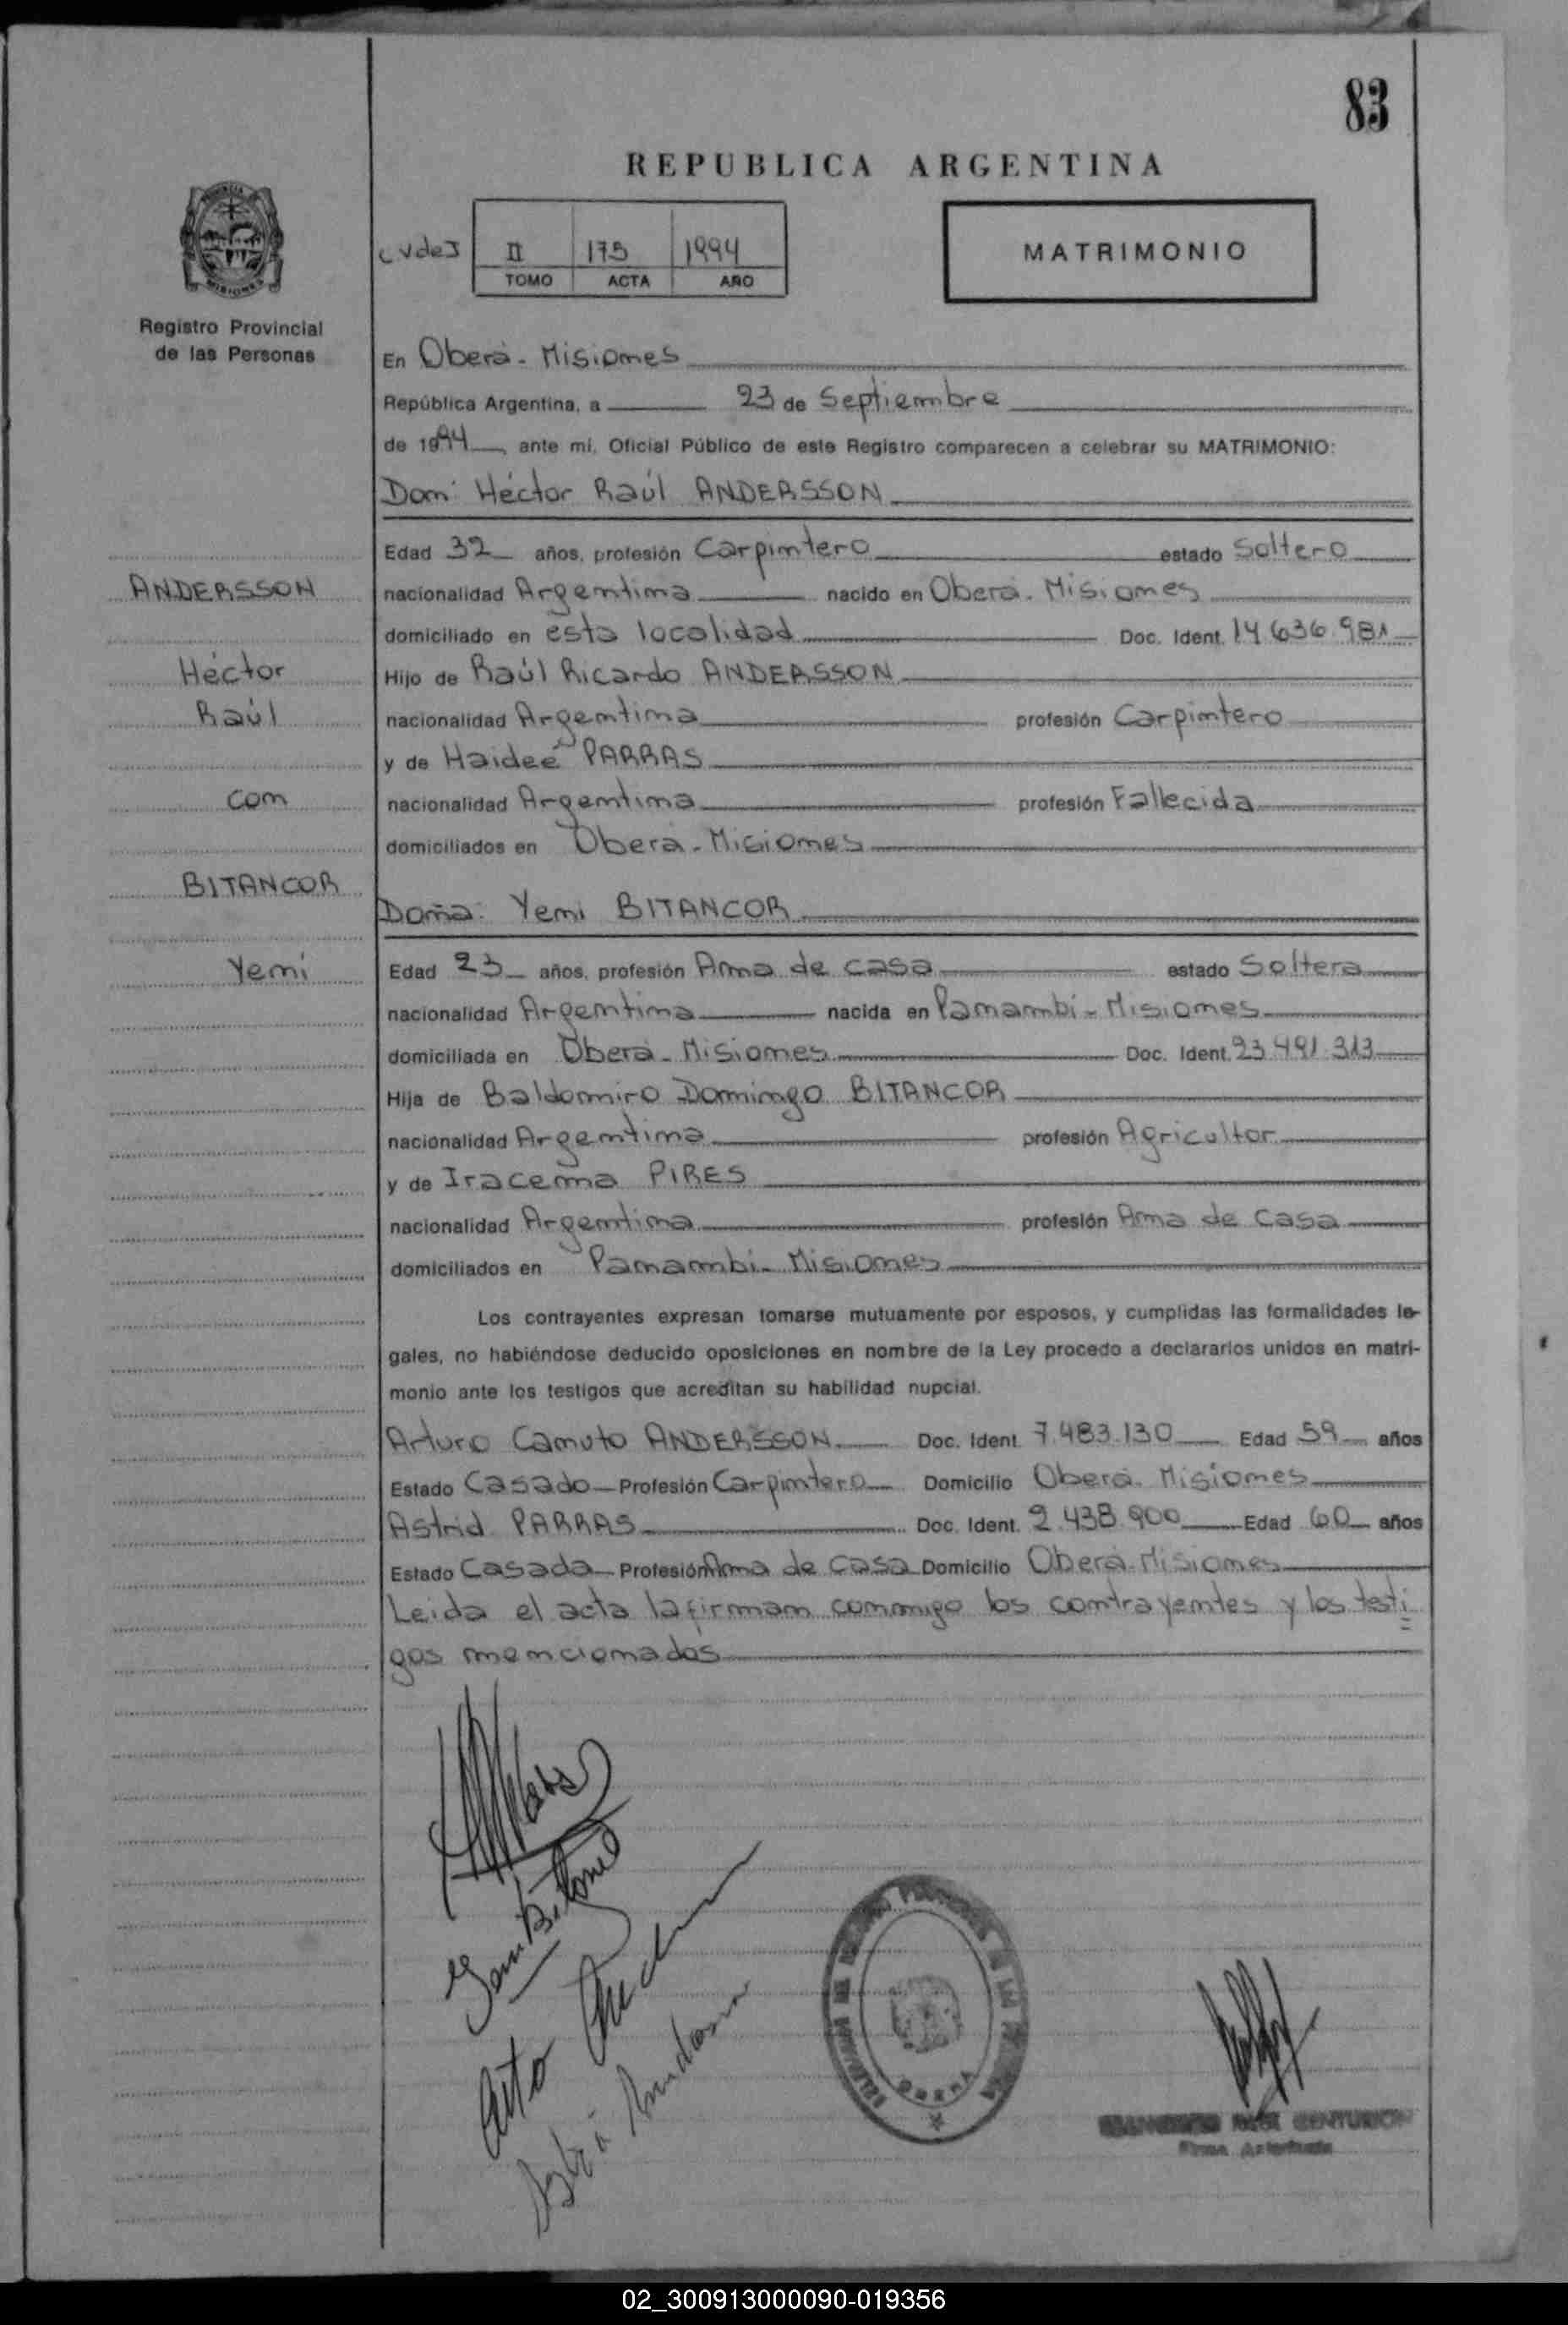 83
REPUBLICA ARGENTINA
II 175 1994
TOMO ACTA AÑO
MATRIMONIO
Registro Provincial
de las Personas
En Oberá - Misiones
República Argentina, a 23 de Septiembre
de 1994, ante mi, Oficial Público de este Registro comparecen a celebrar su MATRIMONIO:
Don: Héctor Raúl ANDERSSON
Edad 32 años, profesión Carpintero estado Soltero
nacionalidad Argentina nacido en Oberá - Misiones
domiciliado en esta localidad Doc. Ident. 14.636.981
Hijo de Raúl Ricardo ANDERSSON
nacionalidad Argentina profesión Carpintero
y de Haideé PARRAS
nacionalidad Argentina profesión Fallecida
domiciliados en Oberá - Misiones
Doña: Yeni BITANCOR
Edad 23 años, profesión Ama de casa estado Soltera
nacionalidad Argentina nacida en Panambí - Misiones
domiciliada en Oberá - Misiones Doc. Ident. 23.491.313
Hija de Baldomiro Domingo BITANCOR
nacionalidad Argentina profesión Agricultor
y de Iracema PIRES
nacionalidad Argentina profesión Ama de casa
domiciliados en Panambí - Misiones
Los contrayentes expresan tomarse mutuamente por esposos, y cumplidas las formalidades le-
gales, no habiéndose deducido oposiciones en nombre de la Ley procedo a declararlos unidos en matri-
monio ante los testigos que acreditan su habilidad nupcial.
Arturo Canuto ANDERSSON Doc. Ident. 7.483.130 Edad 59 años
Estado Casado Profesión Carpintero Domicilio Oberá - Misiones
Astrid PARRAS Doc. Ident. 2.438.900 Edad 60 años
Estado Casada Profesión Ama de casa Domicilio Oberá - Misiones
Leída el acta la firman conmigo los contrayentes y los testi
gos mencionados
ANDERSSON
Héctor
Raúl
con
BITANCOR
Yeni
OBERA
CENTURION
Firma Autorizada
02_300913000090-019356